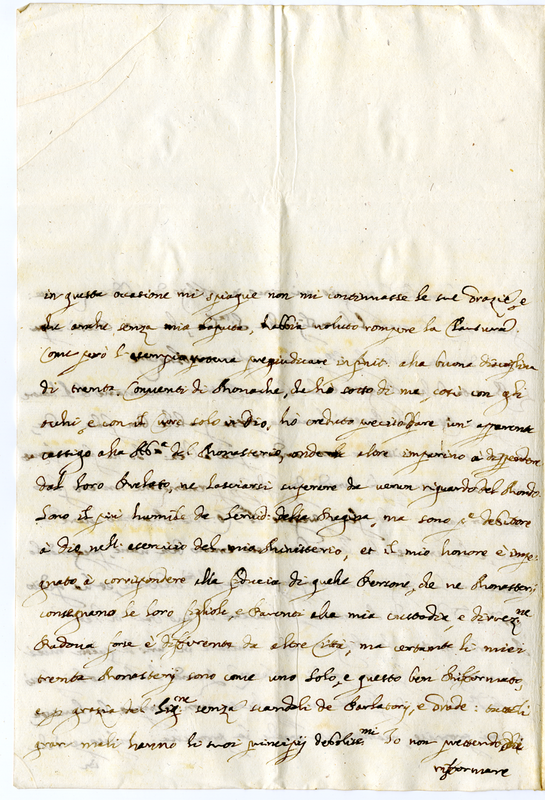 in questa ocasione mi spiaque non mi continuasse le sue Grazie, e
che anche senza mia saputa, habbia voluto rompere la Clausura.
Come però l'esempio poteva pregiudicare infinit. alla buona disciplina
di trenta Conventi di Monache, che ho sotto di me, così con gli
occhi, e con il cuore solo in Dio, ho creduto necess. dare un' apparente
castigo alla Abb.a del Monasterio, onde le altre imparino a dippendere
dal loro Prelato, ne lasciarsi superare da verun riguardo del Mondo.
Sono il più humile de Servid. della Regina, ma sono debitore
à Dio nell' esercizio del mio Ministerio, et il mio honore è impe-
gnato, à corrispondere alla fiducia di quelle Persone, che ne Monasterij
consegnano le loro figliole, e Parenti alla mia custodia, e direz.ne
Padova forse è differente da altre Città, ma certamente li miei
trenta Monasterij sono come uno solo, e questo ben riformato,
e per grazia del Sig.re senza scandali de Parlatorij, e Grade: tutti li
gran mali hanno li suoi principij debolis.mi Io non pretendo di
riformare